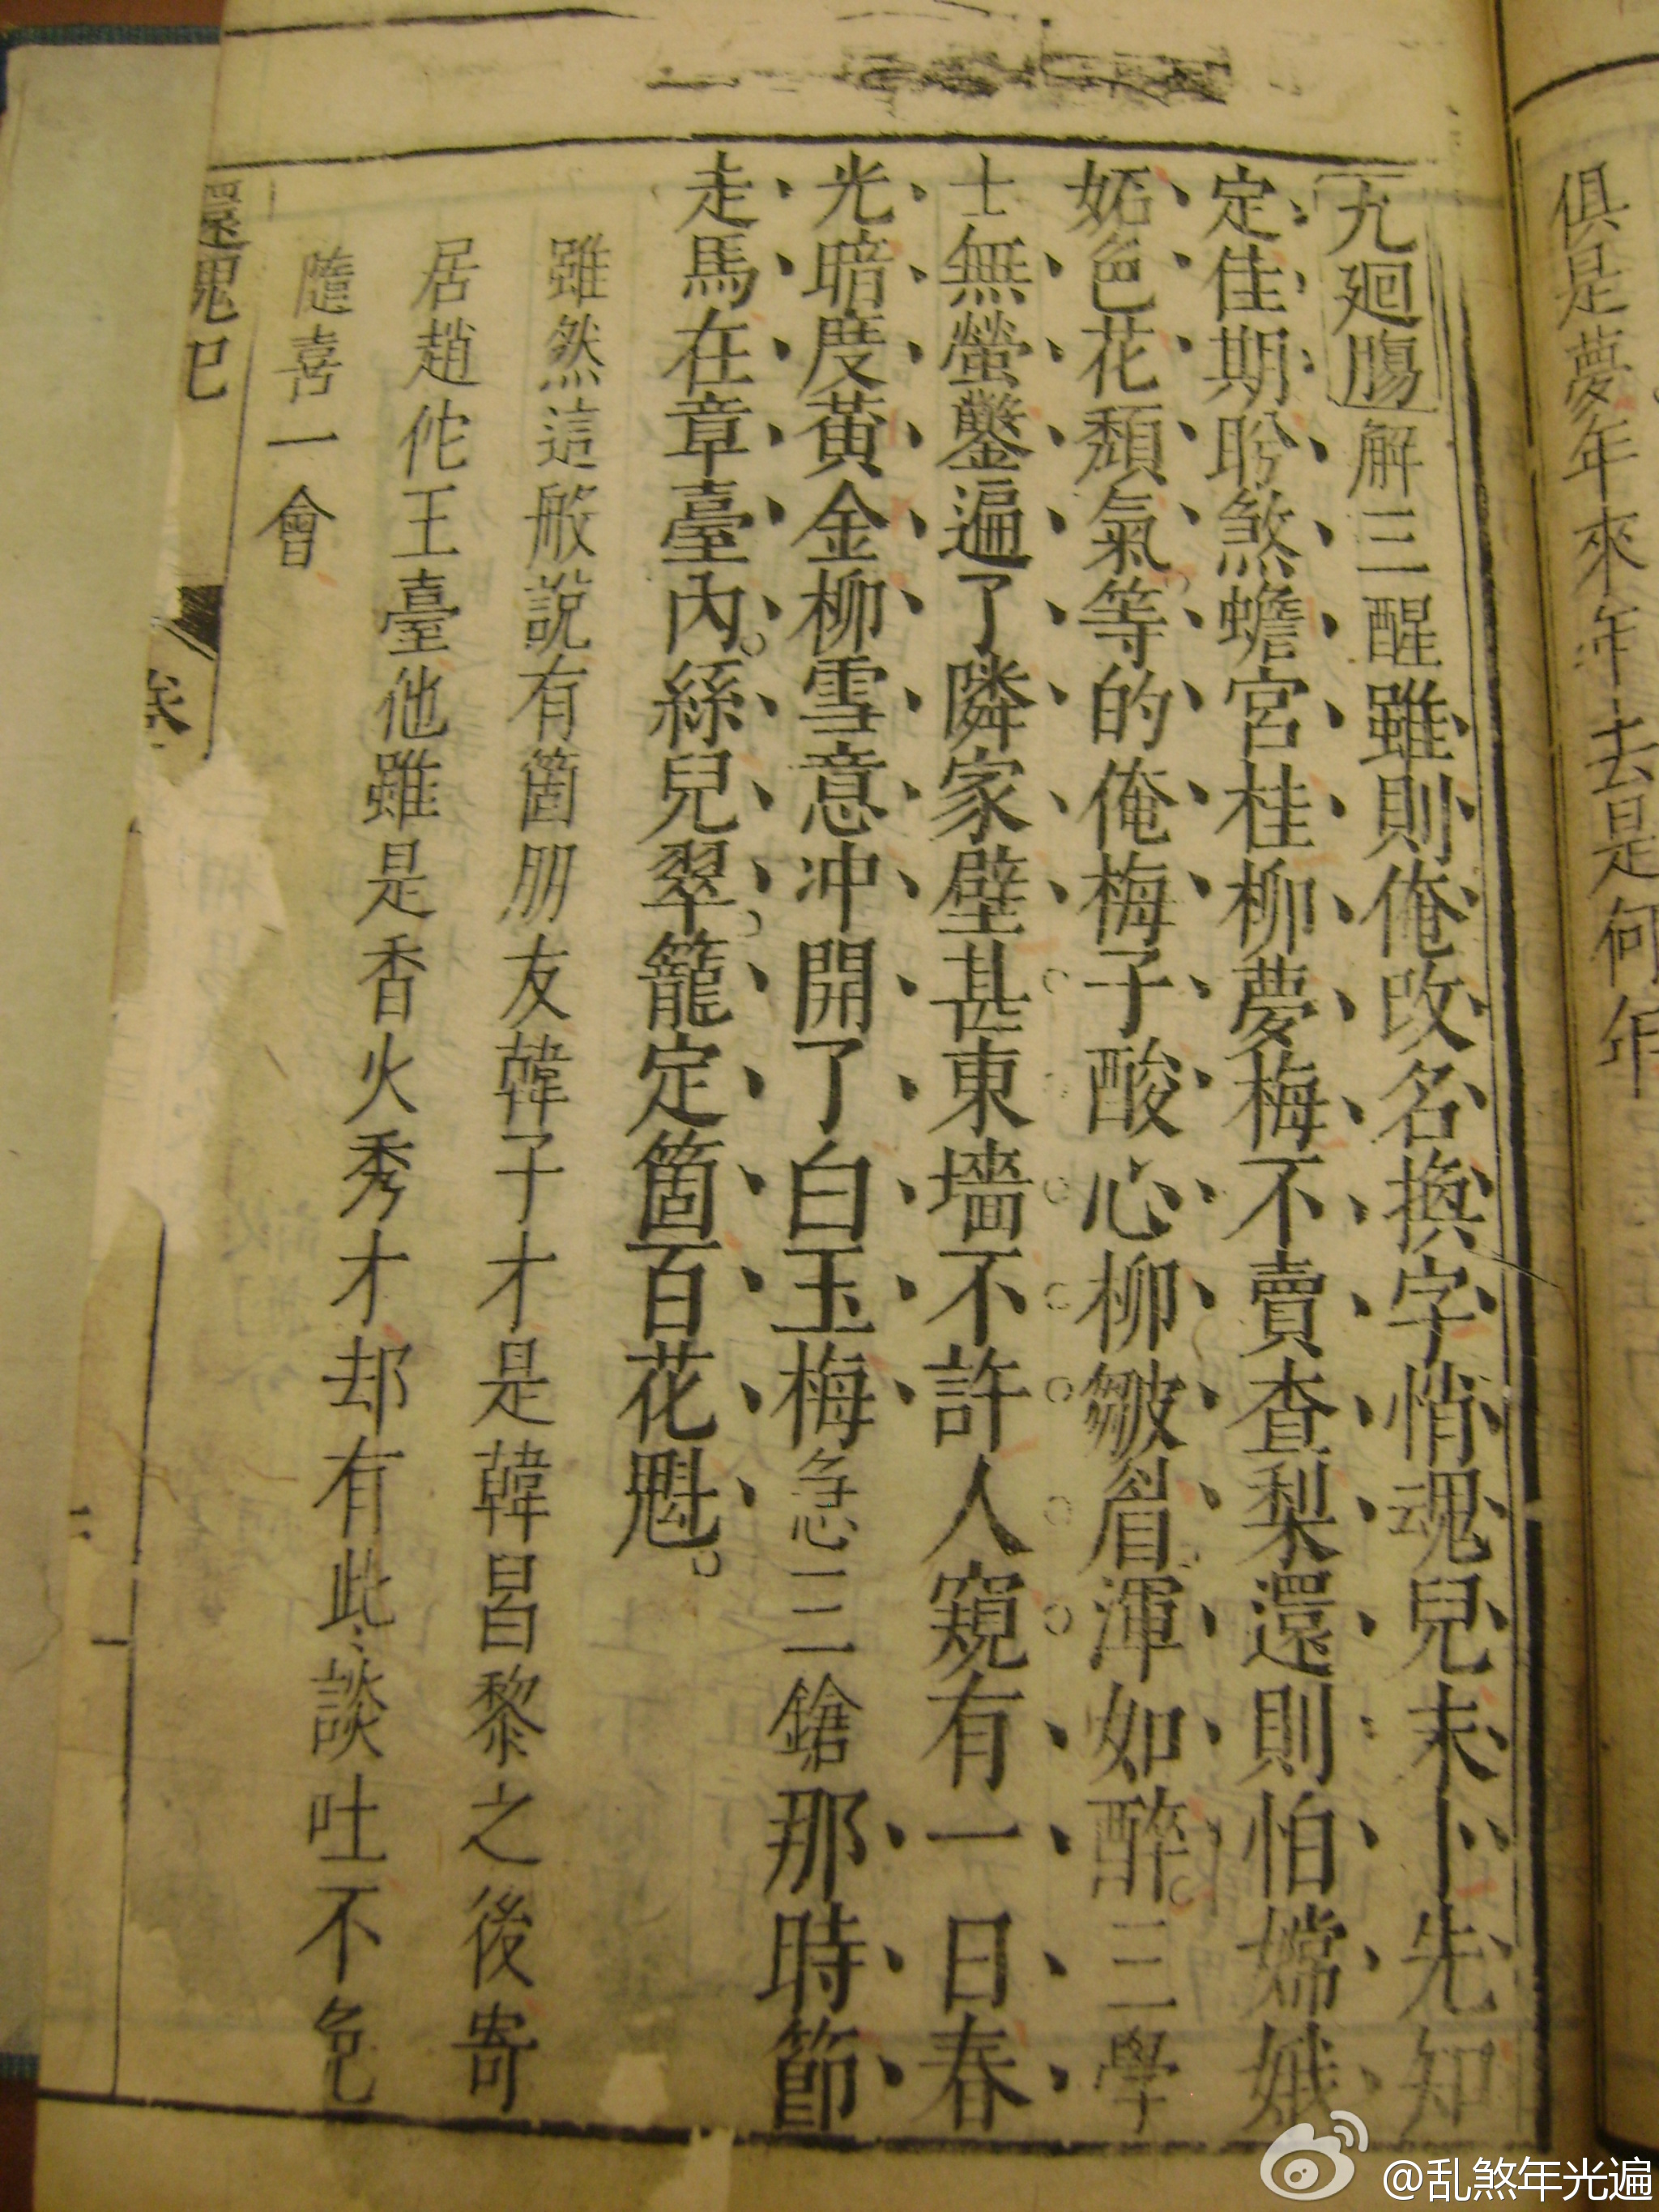 俱是夢年來年去是何年
九廻膓解三酲雖則俺改名換字悄魂兒未卜先知
定佳期盼煞蟾宮桂柳夢梅不賣査梨還則怕嫦娥
妬色花頹氣等的俺梅子酸心柳皺眉渾如醉三學
士無螢鑿遍了隣家壁甚東墻不許人窺有一日春
光暗度黃金柳雪意冲開了白玉梅急三鎗那時節
走馬在章臺內絲兒翠籠定箇百花魁
雖然這般說有箇朋友韓子才是韓昌黎之後寄
居趙佗王臺他雖是香火秀才却有此談吐不免
隨喜一會
還魂記
卷
@乱煞年光遍